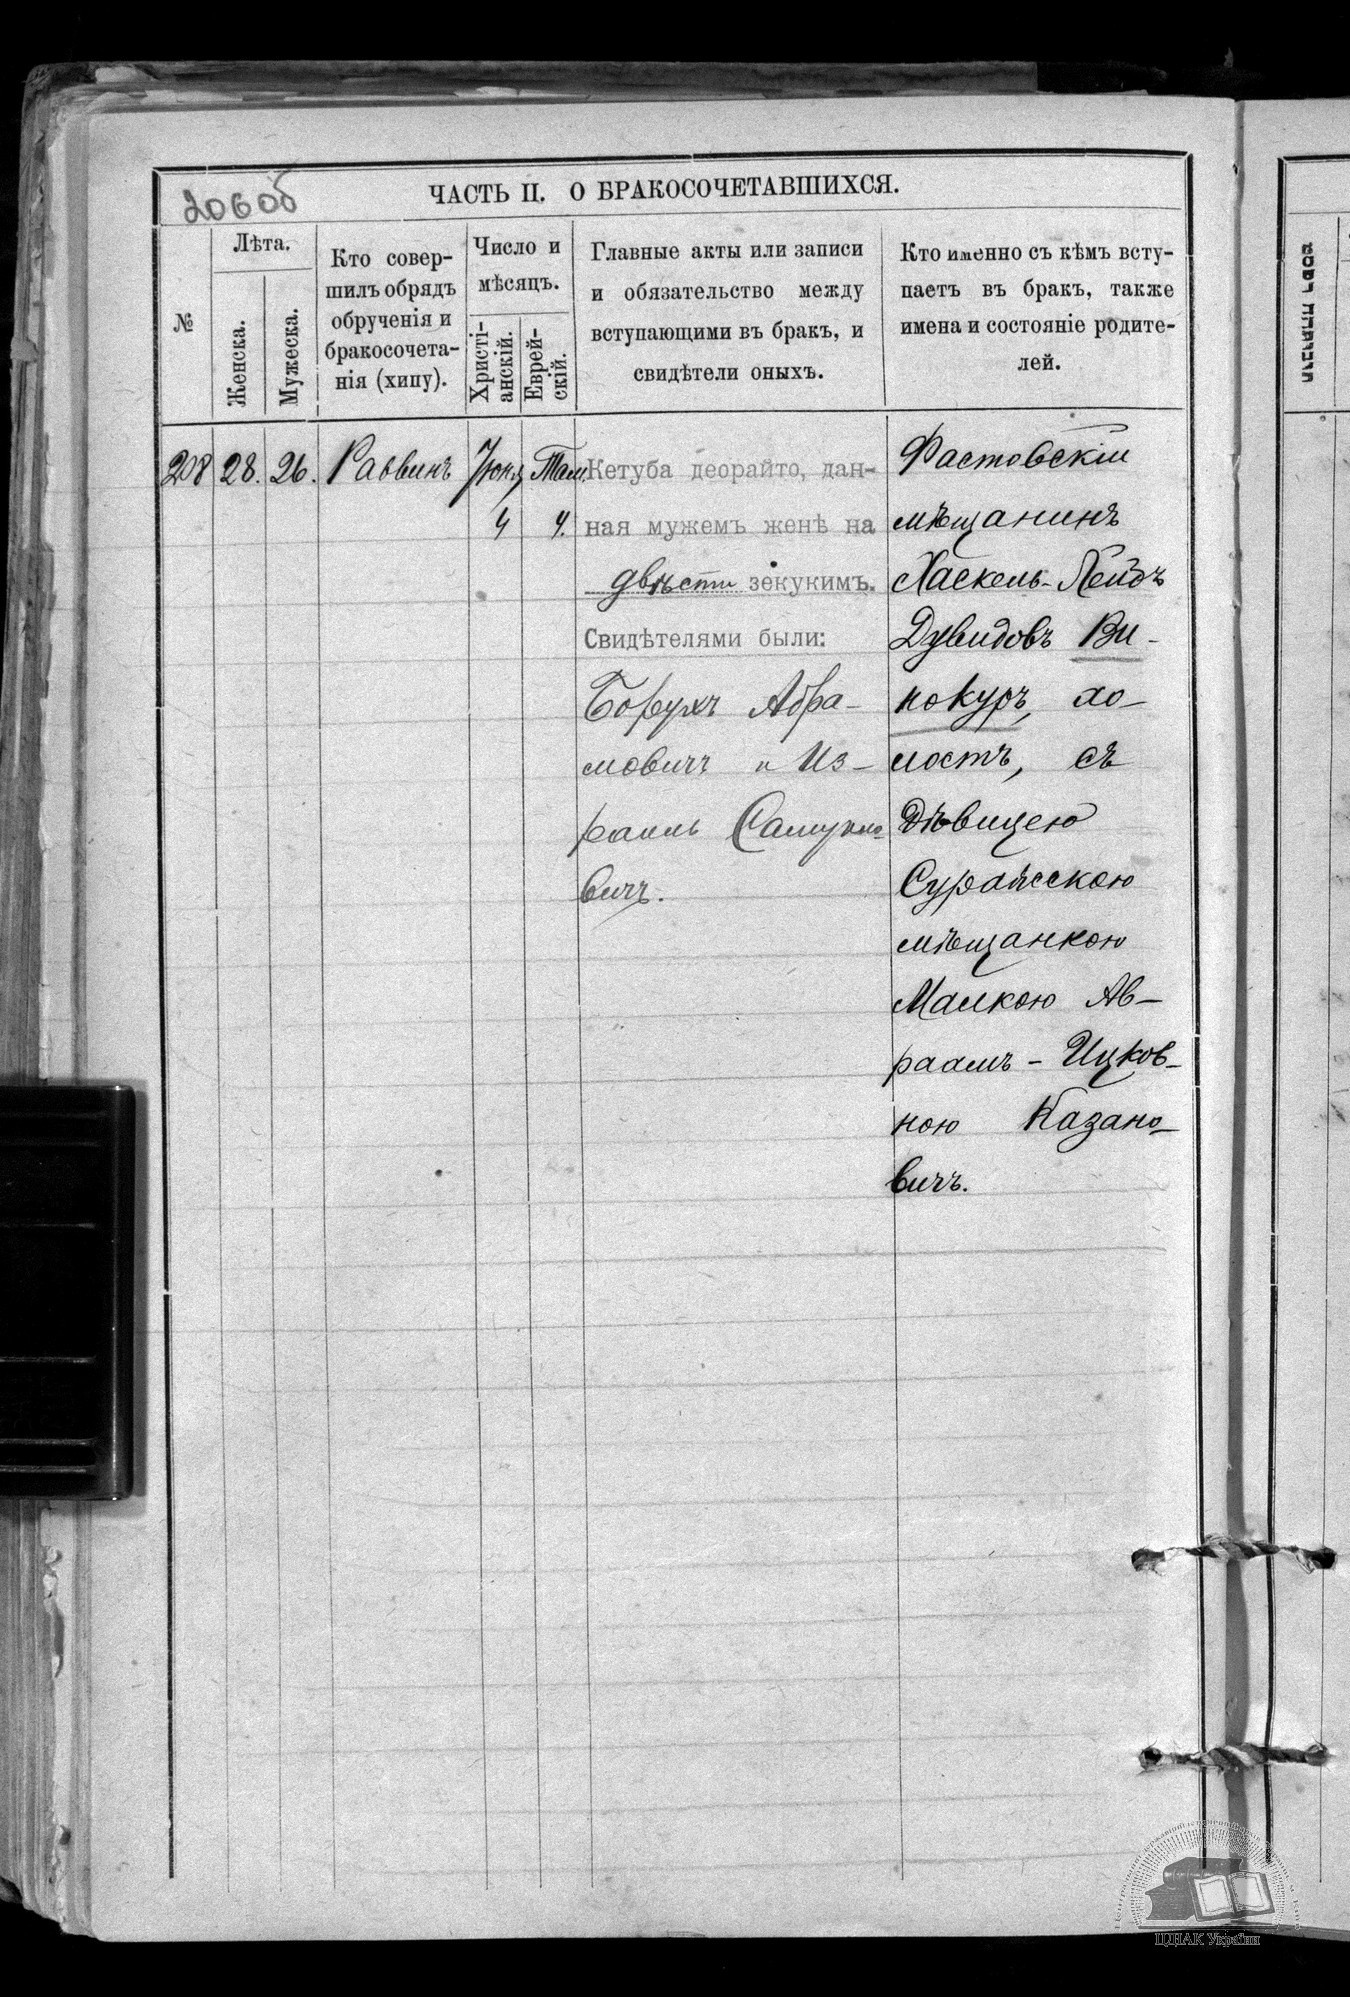 206 об
ЧАСТЬ II. О БРАКОСОЧЕТАВШИХСЯ.
№
Лѣта.
Женска.
Мужеска.
Кто совер-
шилъ обрядъ
обрученія и
бракосочета-
нія (хипу).
Число и
мѣсяцъ.
Христі-
анскій.
Еврей-
скій.
Главные акты или записи
и обязательство между
вступающими въ бракъ, и
свидѣтели оныхъ.
Кто именно съ кѣмъ всту-
паетъ въ бракъ, также
имена и состояніе родите-
лей.
208 28. 26. Раввинъ Іюня 4 Там. 4.
Кетуба деорайто, дан-
ная мужемъ женѣ на
двѣсти зекукимъ.
Свидѣтелями были:
Борухъ Абра-
мовичъ и Из-
раиль Самуило-
вичъ.
Фастовскій
мѣщанинъ
Хаскель-Лейбъ
Дувидовъ Ви-
нокуръ, хо-
лостъ, съ
дѣвицею
Суражскою
мѣщанкою
Малкою Ав-
раамъ-Ицков-
ною Казано-
вичъ.
ЦДІАК України